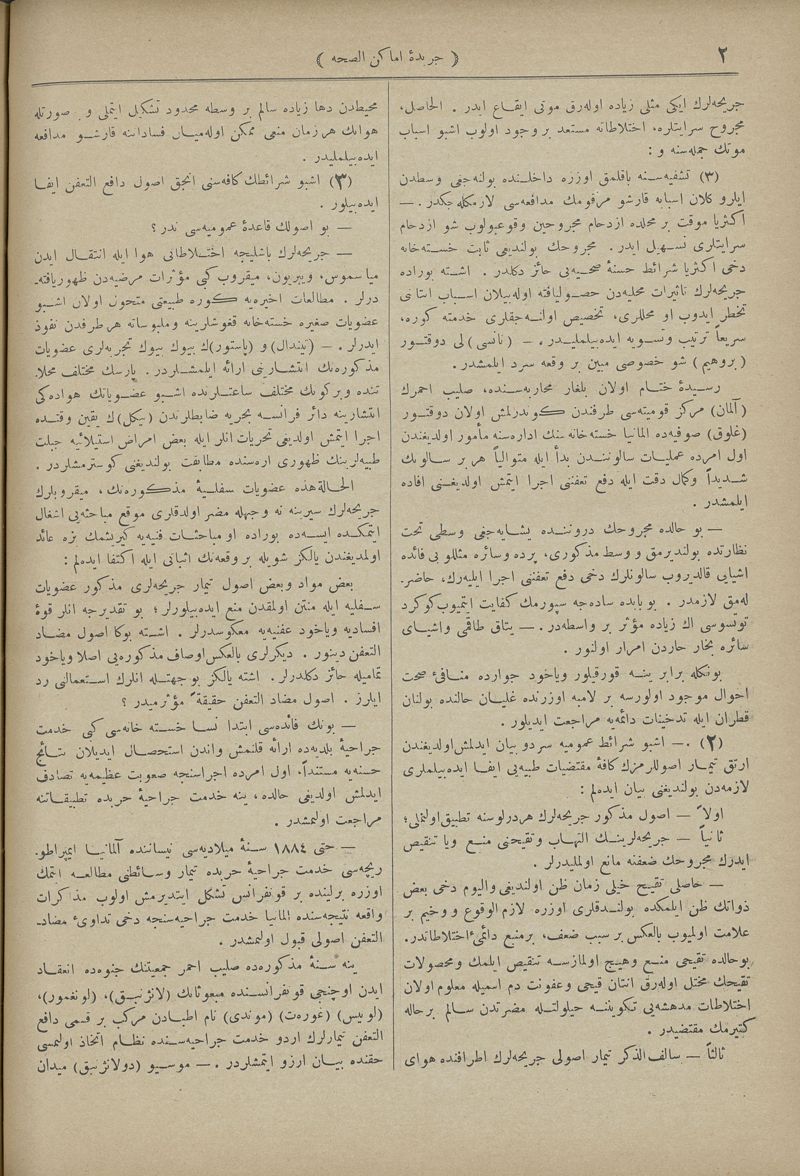 ٢
﴿ جريدهٔ اماكن الصحه ﴾
جريحه‌لرك ايكى مثلى زياده اوله‌رق موتى ايقاع ايدر . الحاصل،
مجروح سرايتلره، اختلاطاته مستعد بر وجود اولوب اشبو اسباب
موتك جمله‌سنه و :
(٣) تشفيه‌سنه باقلمق اوزره داخلنده بولنه‌جغى وسطدن
ايلرو كلان اسبابه قارشو مرقومك مدافعه‌سى لازمكله‌جكدر . —
اكثريا موقت بر محلده ازدحام مجروحين وقوعبولوب شو ازدحام
سرايتلرى تسهيل ايدر . مجروحك بولنديغى ثابت خسته‌خانه
دخى اكثريا شرائط حسنهٔ صحيه‌يى حائز دكلدر . اشته بوراده
جريحه‌لرك تاثيرات محليه‌دن حصوليافته اوله‌بيلان اسباب استانى
تخطر ايدوب او محللرى، تخصيص اولنه‌جقلرى خدمته كوره،
سريعاً ترتيب وتسويه ايده‌بيلمليدر . — (نانسى)لى دوقتور
(بروهيم) شو خصوصى مبين بر وقعه سرد ايلمشدر .
رسيدهٔ ختام اولان بلغار محاربه‌سنده، صليب احمرك
(آلمان) مركز قوميته‌سى طرفندن كوندرلمش اولان دوقتور
(غلوق) صوفيه‌ده المانيا خسته‌خانه‌سنك اداره‌سنه مأمور اولديغندن
اول امرده عمليات سالونندن بدأ ايله متوالياً هر بر سالونك
شديداً وكمال دقت ايله دفع تعفننى اجرا ايتمش اولديغنى افاده
ايلمشدر .
— بو حالده مجروحك دروننده يشايه‌جغى وسطى تحت
نظارتده بولنديرمق و وسط مذكورى، پرده وسائره مثللو بى فائده
اشيايى قالديروب سالونلرك دخى دفع تعفننى اجرا ايليه‌رك، حاضر.
له‌مق لازمدر . بو بابده ساده‌جه سپورمك كفايت ايتميوب كوكرد
توتسوسى اك زياده مؤثر بر واسطه‌در . — يتاق طاقمى واشياى
سائره بخار حاردن امرار اولنور .
بونكله برابر ينه قورقيلور وياخود جوارده منافئ صحت
احوال موجود اولورسه بر لامبه اوزرنده غليان حالنده بولنان
قطران ايله تدخينات دائميه مراجعت ايديلور .
(٢) . — اشبو شرائط عموميه سرد و بيان ايدلمش اولديغندن
ارتق تيمار اصوللرمزك كافهٔ مقتضيات طبيه‌يى ايفا ايده‌بيلملرى
لازمه‌دن بولنديغنى بيان ايده‌لم :
اولاً — اصول مذكور جريحه‌لرك هر درلوسنه تطبيق اولنملى؛
ثانياً — جريحه‌لرينك التهاب وتقيحنى منع ويا تنقيص
ايدرك مجروحك ضعفنه مانع اولمليدرلر .
— حاصلى تقيح خيلى زمان ظن اولنديغى واليوم دخى بعض
ذواتك ظن ايلمكده بولندقلرى اوزره لازم الوقوع و وخيم بر
علامت اولميوب بالعكس بر سبب ضعف، بر منبع دائمئ اختلاطاتدر.
بوحالده تقيحى منع وهيچ اولمازسه تنقيص ايلمك ومحصولات
تقيحك مختل اوله‌رق انتان قيحى وعفونت دم اسميله معلوم اولان
اختلاطات مدهشه‌يى تكوينه حيلولتله مضرتدن سالم بر حاله
كتيرمك مقتضيدر .
ثالثاً — سالف الذكر تيمار اصولى جريحه‌لرك اطرافنده هواى
محيطدن دها زياده سالم بر وسطه محدود تشكل ايتملى و بر صورتله
هوانك هر زمان منعى ممكن اوله‌ميان فساداتنه قارشو مدافعه
ايده‌بيلمليدر .
(٣) اشبو شرائطك كافه‌سنى انجق اصول دافع التعفن ايفا
ايده‌بيلور .
— بو اصولك قاعدهٔ عموميه‌سى ندر ؟
— جريحه‌لرك باشليجه اختلاطاتى هوا ايله انتقال ايدن
مياسموس، ويبريون، ميقروب كبى مؤثرات مرضيه‌دن ظهوريافته.
درلر . مطالعات اخيره‌يه كوره طبيعتى متحون اولان اشبو
عضويات صغيره خسته‌خانه قغوشلرينه وملبوساته هر طرفدن نفوذ
ايدرلر . — (تيندال) و (پاستور)ك بيوك بيوك تجربه‌لرى عضويات
مذكوره‌نك انتشارينى ارائه ايلمشلردر . پارسك مختلف محلا.
تنده و بر كونك مختلف ساعتلرنده اشبو عضوياتك هواده‌كى
انتشارينه دائر فرانسه بحريه ضابطلرندن (ميكل)ك يقين وقتده
اجرا ايتمش اولديغى تحريات انلر ايله بعض امراض استيلائيه جبلت
طبيه‌لرينك ظهورى اره‌سنده مطابقت بولنديغنى كوسترمشلردر .
الحالة هذه عضويات سفليهٔ مذكوره‌نك، ميقروبلرك
جريحه‌لرك سيرينه نه وجهله مضر اولدقلرى موقع مباحثه‌يى اشغال
ايتمكده ايسه‌ده بوراده او مباحثات فنيه‌يه كيريشمك بزه عائد
اولمديغندن يالكز شويله بر وقعه‌نك اثباتى ايله اكتفا ايده‌لم :
بعض مواد وبعض اصول تيمار جريحه‌لرى مذكور عضويات
سفليه ايله منتن اولمقدن منع ايده‌بيلورلر؛ بو تقديرجه انلر قوهٔ
افساديه وياخود عفنيه‌يه معكوسدرلر . اشته بوكا اصول مضاد
التعفن دينور . ديكرلرى بالعكس اوصاف مذكوره‌يى اصلا وياخود
تماميله حائز دكلدرلر . اشته يالكز بو جهتله انلرك استعمالنى رد
ايلرز . اصول مضاد التعفن حقيقةً مؤثرميدر ؟
— بونك فائده‌سى ابتدا نسا خسته خانه‌سى كبى خدمت
جراحيهٔ بلديه‌ده ارائه قلنمش واندن استحصال ايديلان نتائج
حسنه‌يه مستنداً. اول امرده اجراسنجه صعوبت عظيمه‌يه تصادف
ايدلمش اولديغى حالده، ينه خدمت جراحيهٔ حربده تطبيقاتنه
مراجعت اولنمشدر .
— حتى ١٨٨٤ سنهٔ ميلاديه‌سى نيساننده آلمانيا ايمپراطو.
ريچه‌سى خدمت جراحيهٔ حربده تيمار وسائطنى مطالعه ايتمك
اوزره برلينده بر قونفرانس تشكل ايتديرمش اولوب مذاكرات
واقعه نتيجه‌سنده المانيا خدمت جراحيه‌سنجه دخى تداوئ مضاد.
التعفن اصولى قبول اولنمشدر .
ينه سنهٔ مذكوره‌ده صليب احمر جمعيتنك جنوه‌ده انعقاد
ايدن اوچنجى قونفرانسنده مبعوثانك (لانژنبق)، (لونغمور)،
(لويس) (غوره‌ت) (موندى) نام اطبادن مركب بر قسمى دافع
التعفن تيمارلرك اردو خدمت جراحيه‌سنده نظام اتخاذ اولنمسى
حقنده بيان ارزو ايتمشلردر . — موسيو (دولانژنبق) ميدان